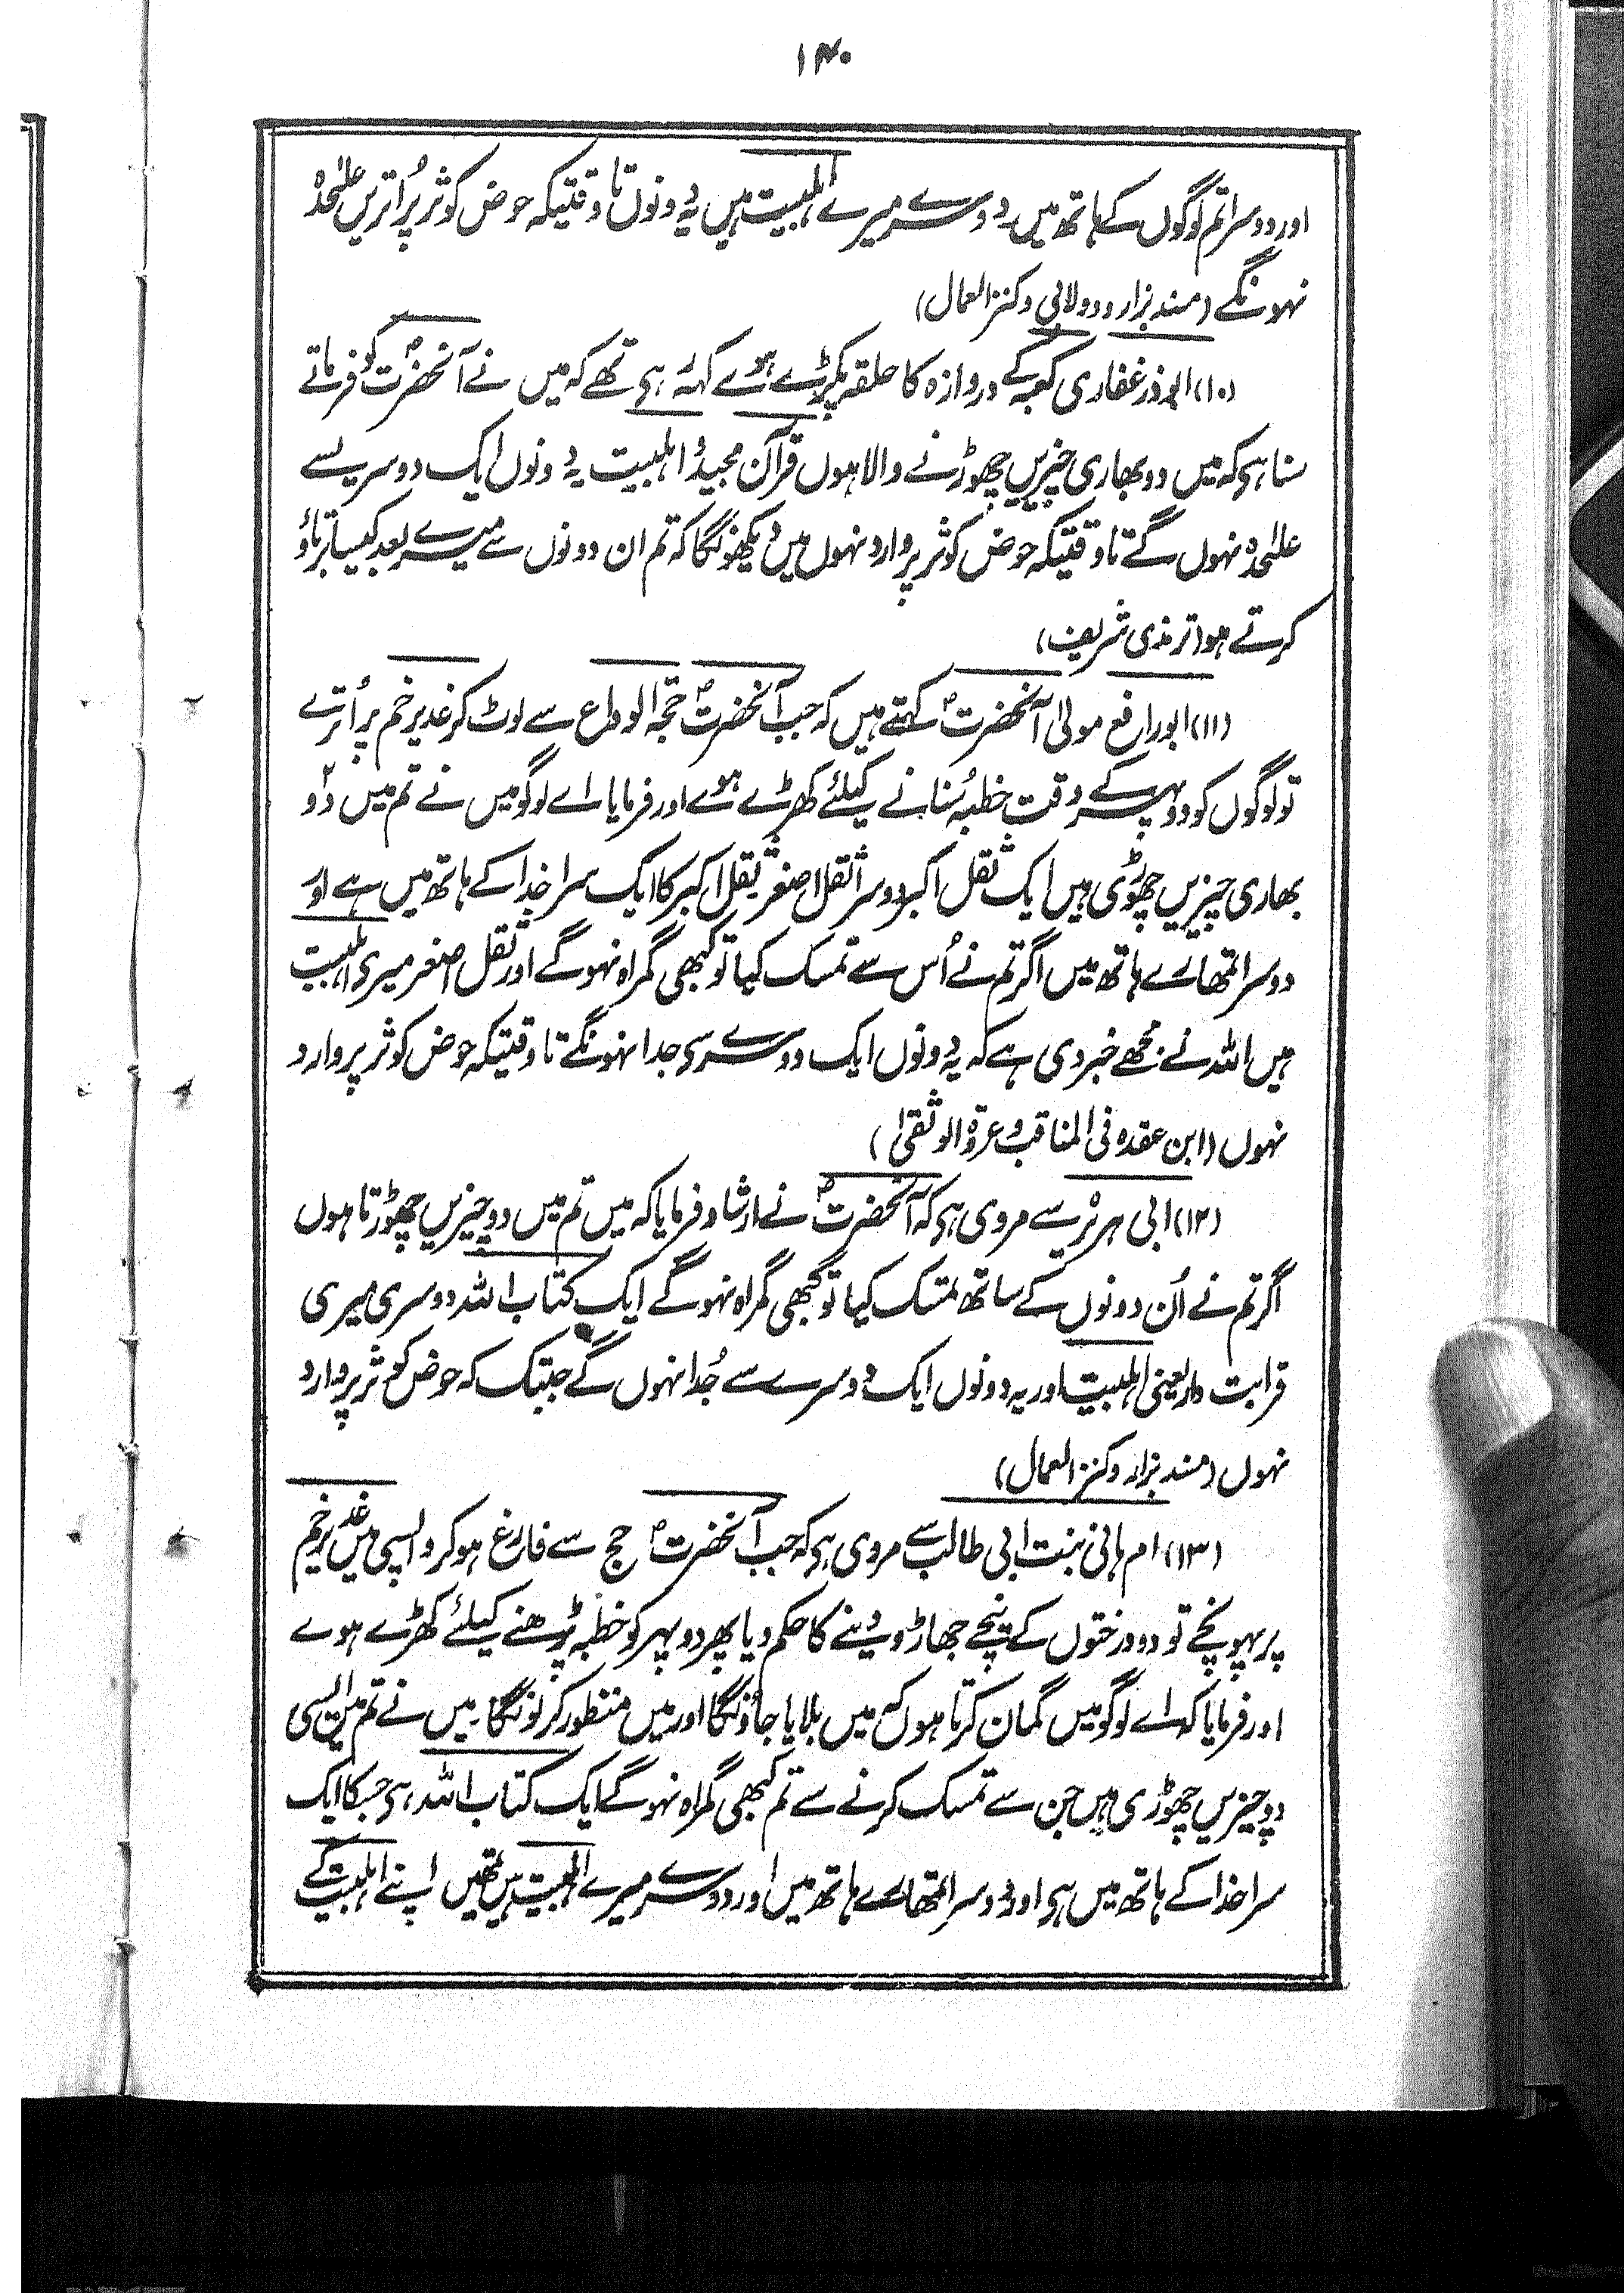 ۱۴۰
اور دوسرا تم لوگوں کے ہاتھ میں۔ دوسرے میرے اہلبیت ہیں یہ دونوں تا وقتیکہ حوض کوثر پر اُتریں علٰحدہ
نہونگے (مسند بزار و دولابی وکنز العمال)
(۱۰) ابوذر غفاری کعبہ کے دروازہ کا حلقہ پکڑے ہوے کہہ رہی تھے کہ میں نے آنحضرتؐ کو فرماتے
سنا ہی کہ میں دو بھاری چیزیں چھوڑنے والا ہوں قرآن مجید و اہلبیت یہ دونوں ایک دوسرے سے
علٰحدہ نہوں گے تا وقتیکہ حوض کوثر پر وارد نہوں میں دیکھونگا کہ تم ان دونوں سے میرے بعد کیسا برتاؤ
کرتے ہو (ترمذی شریف)
(۱۱) ابورافع مولیٰ آنحضرتؐ کہتے ہیں کہ جب آنحضرتؐ حجۃ الوداع سے لوٹ کر غدیر خم پر اُترے
تو لوگوں کو دوپہر کے وقت خطبہ سُنانے کیلئے کھڑے ہوے اور فرمایا اے لوگو میں نے تم میں دو
بھاری چیزیں چھوڑی ہیں ایک ثقل اکبر دوسرا ثقل اصغر ثقل اکبر کا ایک سرا خدا کے ہاتھ میں ہے اور
دوسرا تمھارے ہاتھ میں اگر تم نے اُس سے تمسک کیا تو کبھی گمراہ نہوگے اور ثقل اصغر میری اہلبیت
ہیں اللہ نے مجھے خبر دی ہے کہ یہ دونوں ایک دوسرے سی جدا نہونگے تا وقتیکہ حوض کوثر پر وارد
نہوں (ابن عقدہ فی المناقب و عروۃ الوثقیٰ)
(۱۲) ابی ہریرہ سے مروی ہی کہ آنحضرتؐ نے ارشاد فرمایا کہ میں تم میں دو چیزیں چھوڑتا ہوں
اگر تم نے اُن دونوں کے ساتھ تمسک کیا تو کبھی گمراہ نہوگے ایک کتاب اللہ دوسری میری
قرابت دار یعنی اہلبیت اور یہ دونوں ایک دوسرے سے جُدا نہوں گے جبتک کہ حوض کوثر پر وارد
نہوں (مسند بزار وکنز العمال)
(۱۳) ام ہانی بنت ابی طالب سے مروی ہی کہ جب آنحضرتؐ حج سے فارغ ہوکر واپسی میں غدیر خم
پر پہونچے تو دو درختوں کے نیچے جھاڑو دینے کا حکم دیا پھر دوپہر کو خطبہ پڑھنے کیلئے کھڑے ہوے
اور فرمایا کہ اے لوگو میں گمان کرتا ہوں کہ میں بلایا جاؤنگا اور میں منظور کرلونگا۔ میں نے تم میں ایسی
دو چیزیں چھوڑی ہیں جن سے تمسک کرنے سے تم کبھی گمراہ نہوگے ایک کتاب اللہ ہی جسکا ایک
سرا خدا کے ہاتھ میں ہی اور دوسرا تمھارے ہاتھ میں اور دوسرے میرے اہلبیت ہیں تمھیں اپنے اہلبیت کے